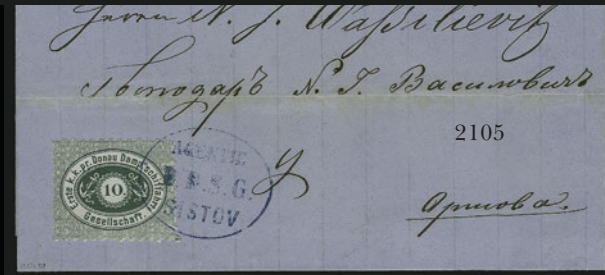 Herrn N. J. Wassilievit
Господарь N. Г. Василовичъ
2105
У
Оршова.
Erste k.k. pr. Donau Dampfschiffahrt
10
Gesellschaft.
AGENTIE
D.D.S.G.
SISTOV